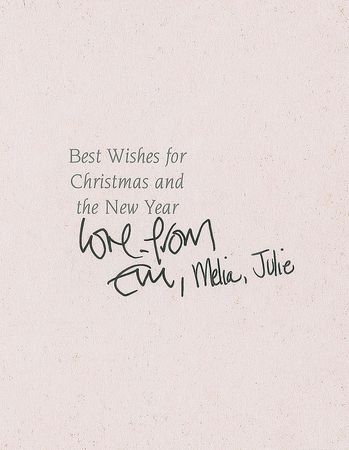 Best Wishes for
Christmas and
the New Year
Love from
, Melia, Julie